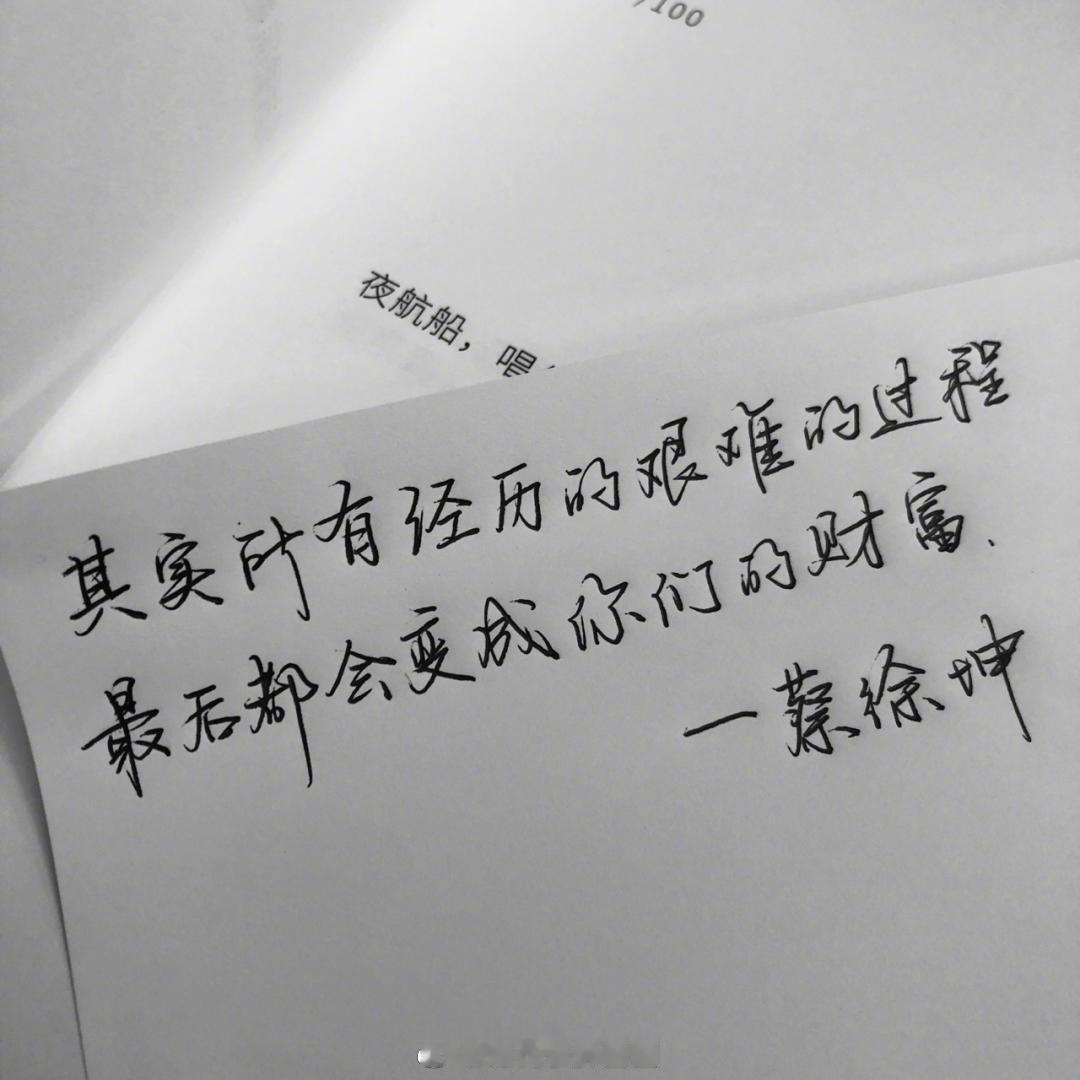 /100
夜航船，喝
其实所有经历的艰难的过程
最后都会变成你们的财富.
—蔡徐坤